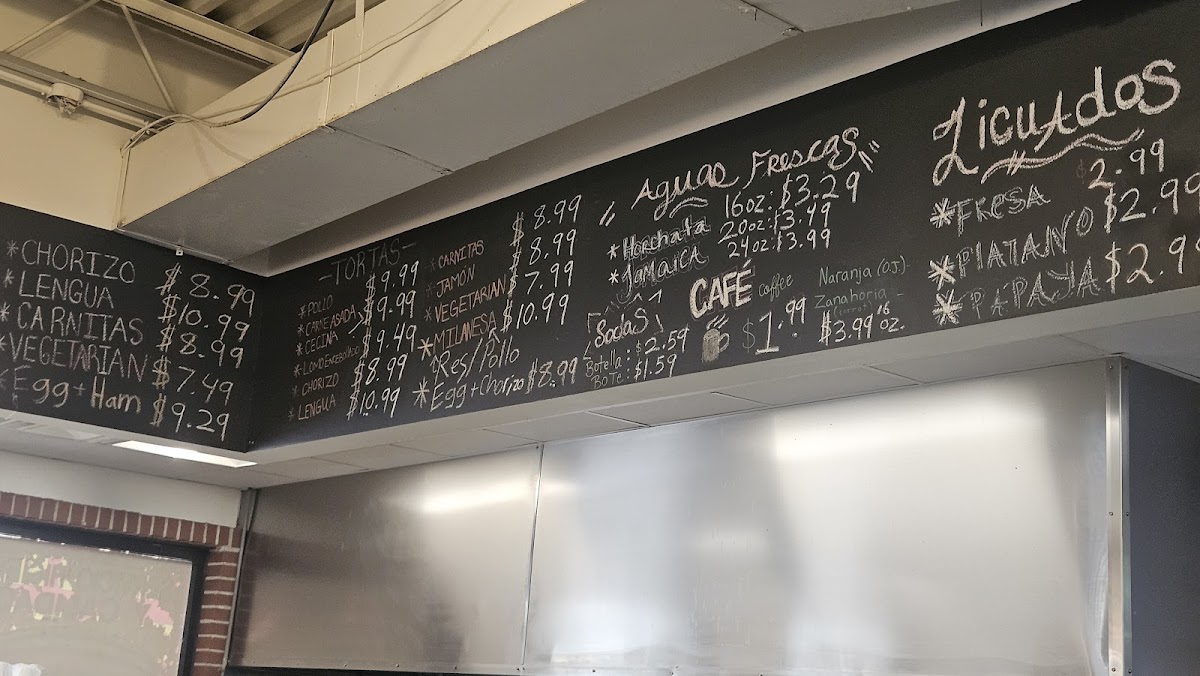 *CHORIZO $8.99
*LENGUA $10.99
*CARNITAS $8.99
*VEGETARIAN $7.49
*Egg+Ham $9.29
-TORTAS-
*POLLO $9.99
*CARNE ASADA
*CECINA $9.99
$9.49
*CHORIZO $8.99
*LENGUA $10.99
*CARNITAS $8.99
*JAMÓN $8.99
*VEGETARIAN $7.99
*MILANESA $10.99
Res/Pollo
*Egg+Chorizo $8.99
Aguas Frescas
*Horchata
*Jamaica
16oz: $3.29
20oz: $3.49
24oz: $3.99
Sodas
Botella: $2.59
BoTe: $1.59
CAFÉ coffee
$1.99
Naranja (O.J.)
Zanahoria
$3.99 16 oz.
Licuados
*FRESA $2.99
*PlATANO $2.99
*PAPAYA $2.9